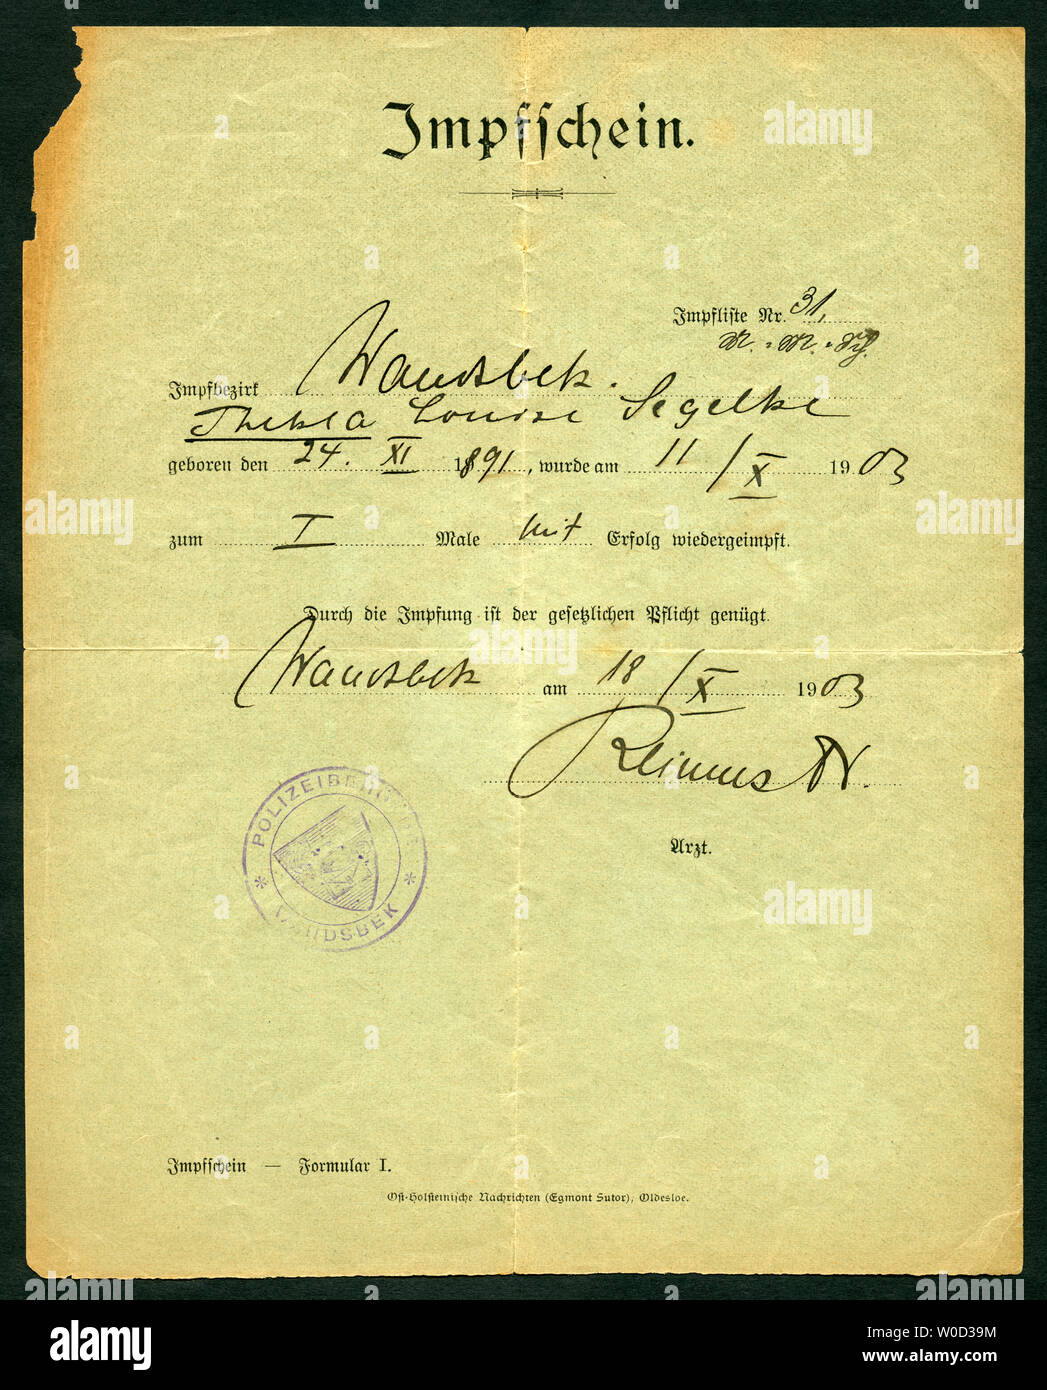 Impfschein.
Impfliste Nr. 31,
Impfbezirk Wandsbek.
Thekla Louise Segelke
geboren den 24. XI 1891, wurde am 11/X 1903
zum I Male mit Erfolg wiedergeimpft.
Durch die Impfung ist der gesetzlichen Pflicht genügt.
Wandsbek am 18/X 1903
Reimers Dr.
Arzt.
POLIZEIBEHÖRDE
* WANDSBEK *
Impfschein — Formular I.
Ost-Holsteinische Nachrichten (Egmont Sutor), Oldesloe.
alamy
alamy
alamy
alamy
alamy
Image ID: W0D39M
www.alamy.com